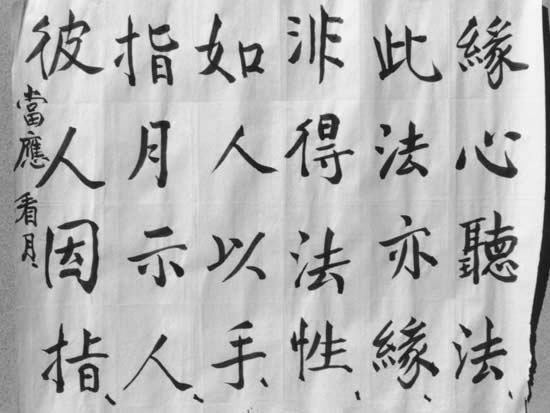 緣心聽法、
此法亦緣、
非得法性、
如人以手、
指月示人、
彼人因指、
當應看月、